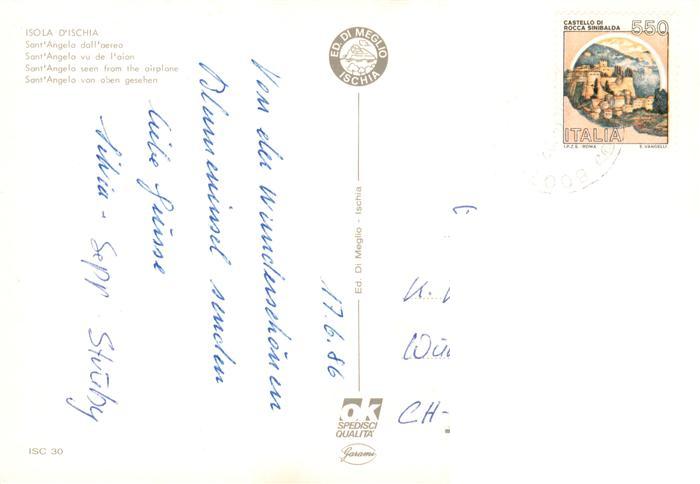 ISOLA D'ISCHIA
Sant'Angelo dall'aereo
Sant'Angelo vu de l'aion
Sant'Angelo seen from the airplane
Sant'Angelo von oben gesehen
17.6.86
Von der wunderschönen
Blumeninsel senden
liebe Grüsse
Silvia - Sepp
ISC 30
ED. DI MEGLIO
ISCHIA
Ed. Di Meglio - Ischia
ok
SPEDISCI
QUALITA'
Garami
CASTELLO DI
ROCCA SINIBALDA
550
ITALIA
I.P.Z.S. ROMA E. VANGELLI
K.
CH-